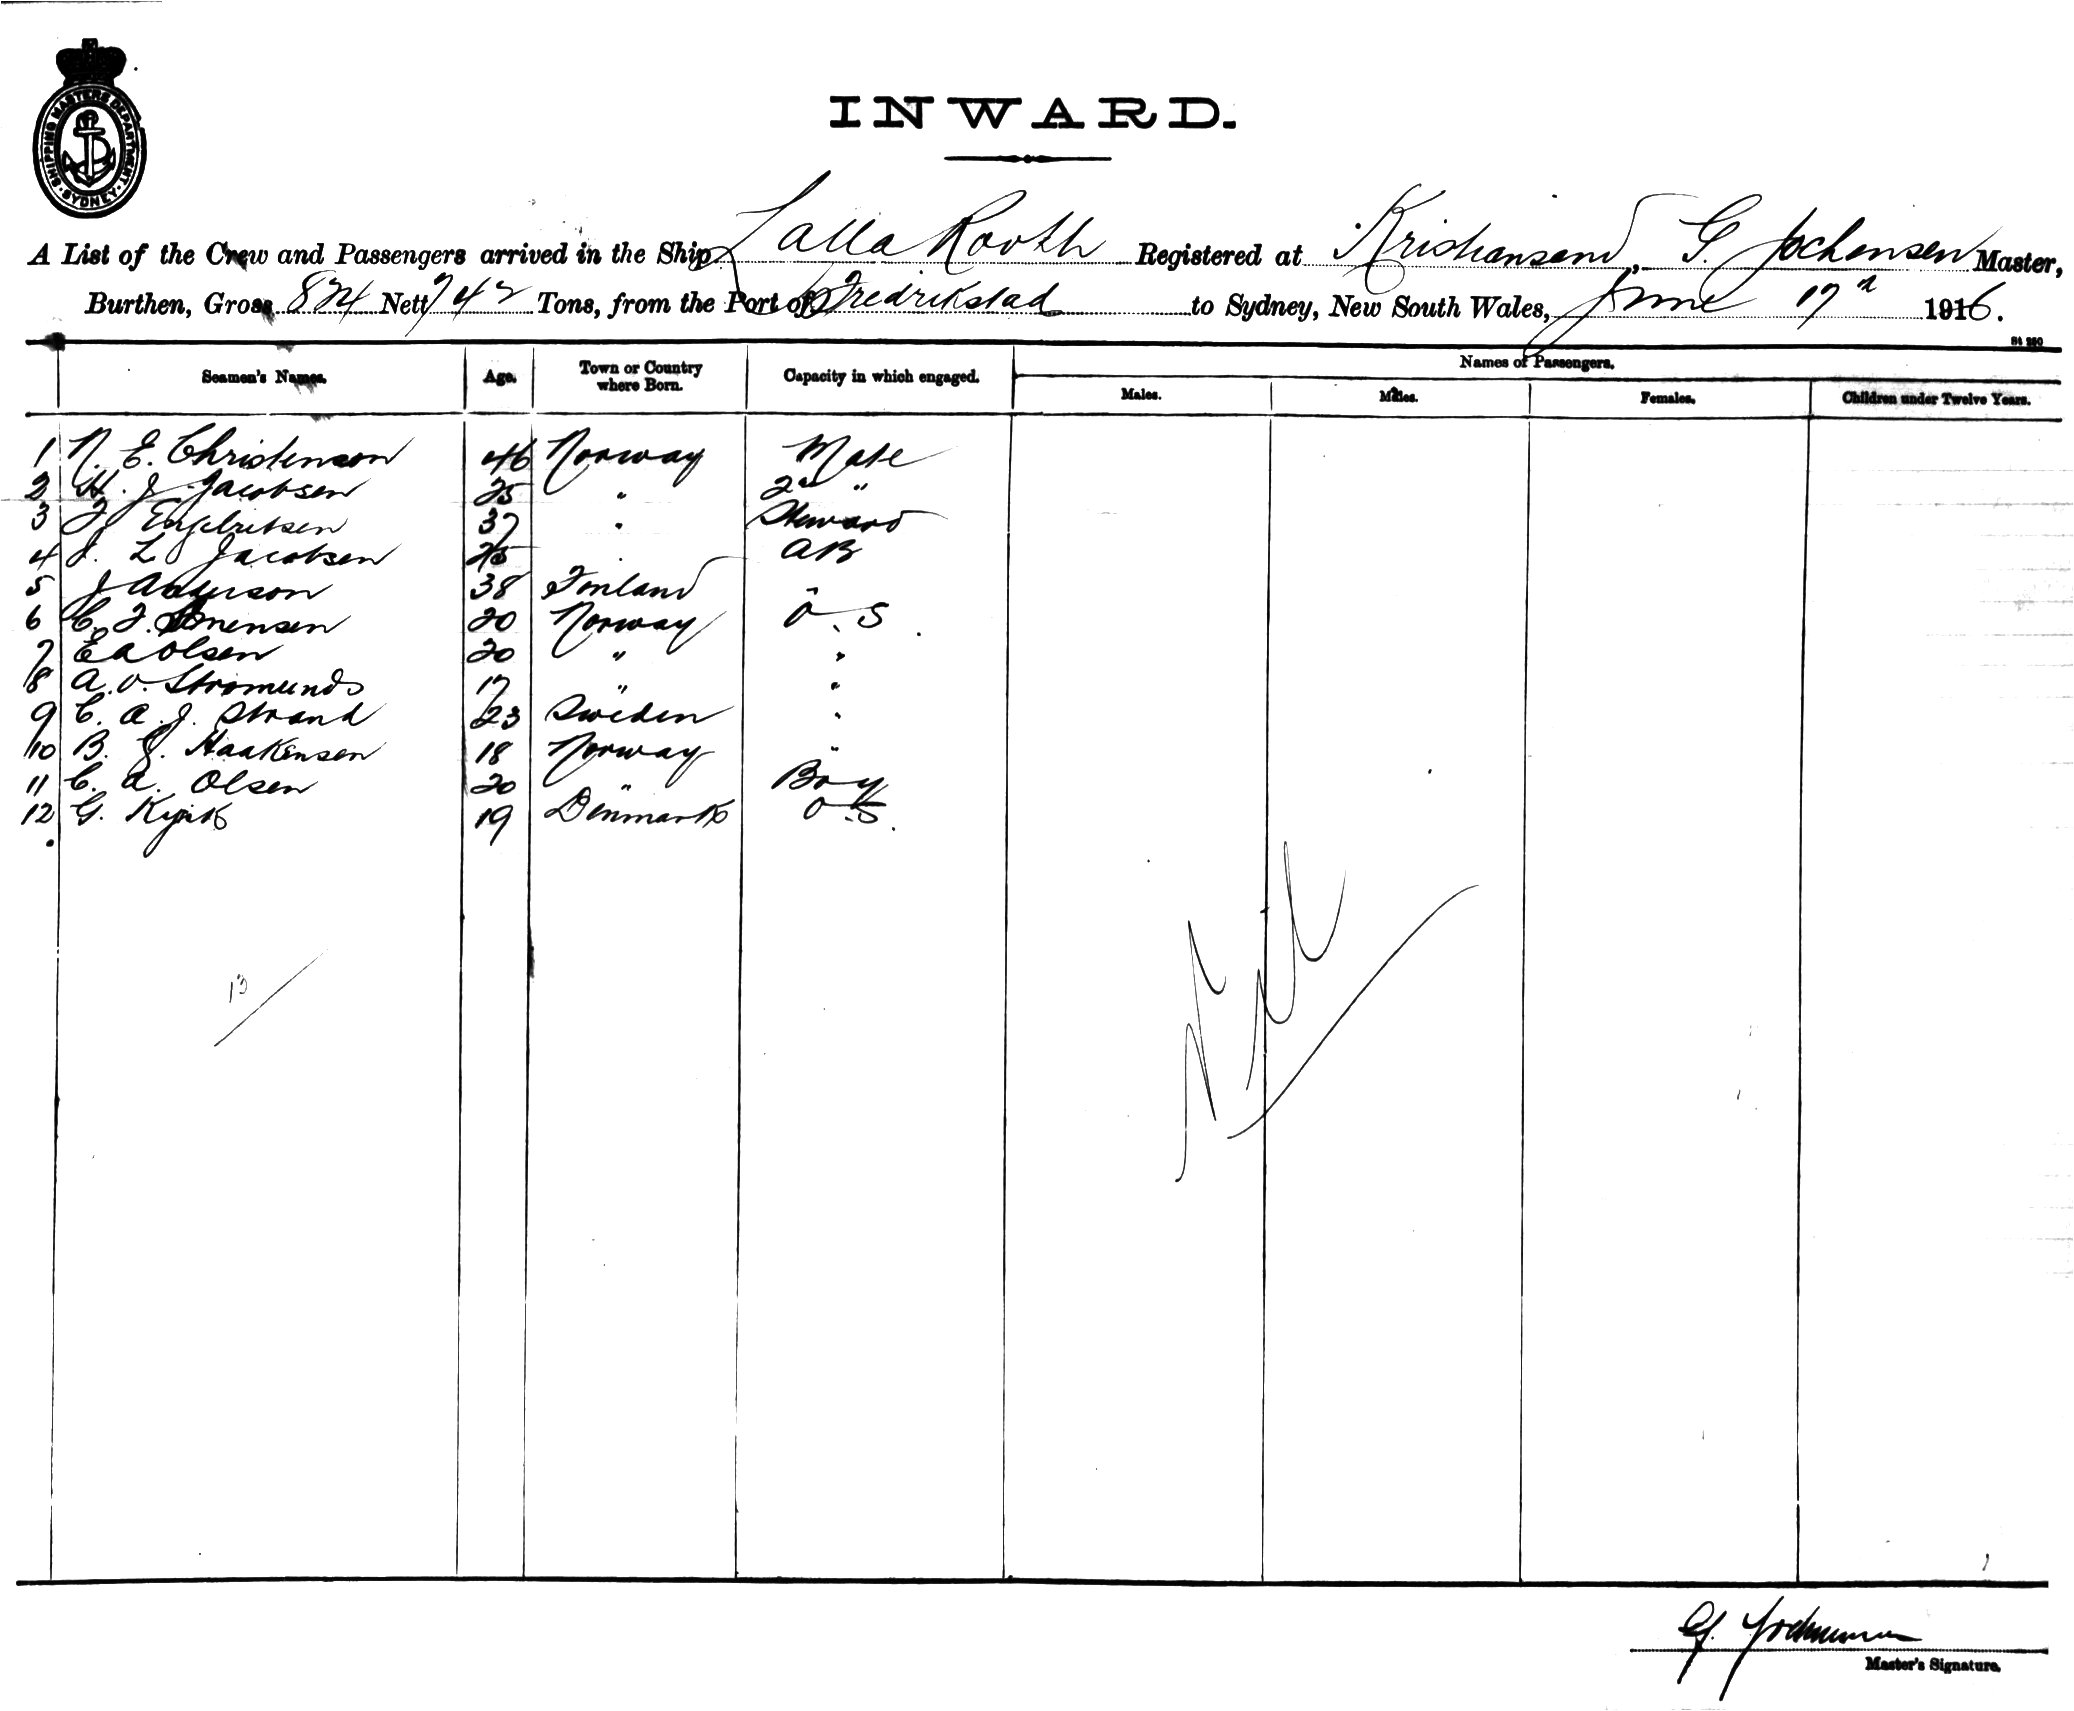 SHIPPING MASTERS DEPARTMENT · SYDNEY ·
INWARD.
A List of the Crew and Passengers arrived in the Ship Lalla Rookh Registered at Kristiansand, G. Jochensen Master,
Burthen, Gross 824 Nett 742 Tons, from the Port of Fredrikstad to Sydney, New South Wales, June 17th 1916.
St 280
Seamen's Names. Age. Town or Country where Born. Capacity in which engaged. Names of Passengers.
Males. Males. Females. Children under Twelve Years.
1 N. E. Christenson 46 Norway Mate
2 H. J. Jacobsen 25 " 2nd "
3 F Engebretsen 37 " Steward
4 J. L Jacobsen 25 " AB
5 J Anderson 38 Finland "
6 C. F. Sorensen 20 Norway O. S.
7 E A Olsen 20 " "
8 A. O. Stromunds 17 " "
9 C. A. J. Strand 23 Sweden "
10 B. J. Haakensen 18 Norway "
11 C. A. Olsen 20 " Boy
12 G. 19 Denmark O. S.
13
Nil
G. Jochumsen
Master's Signature.